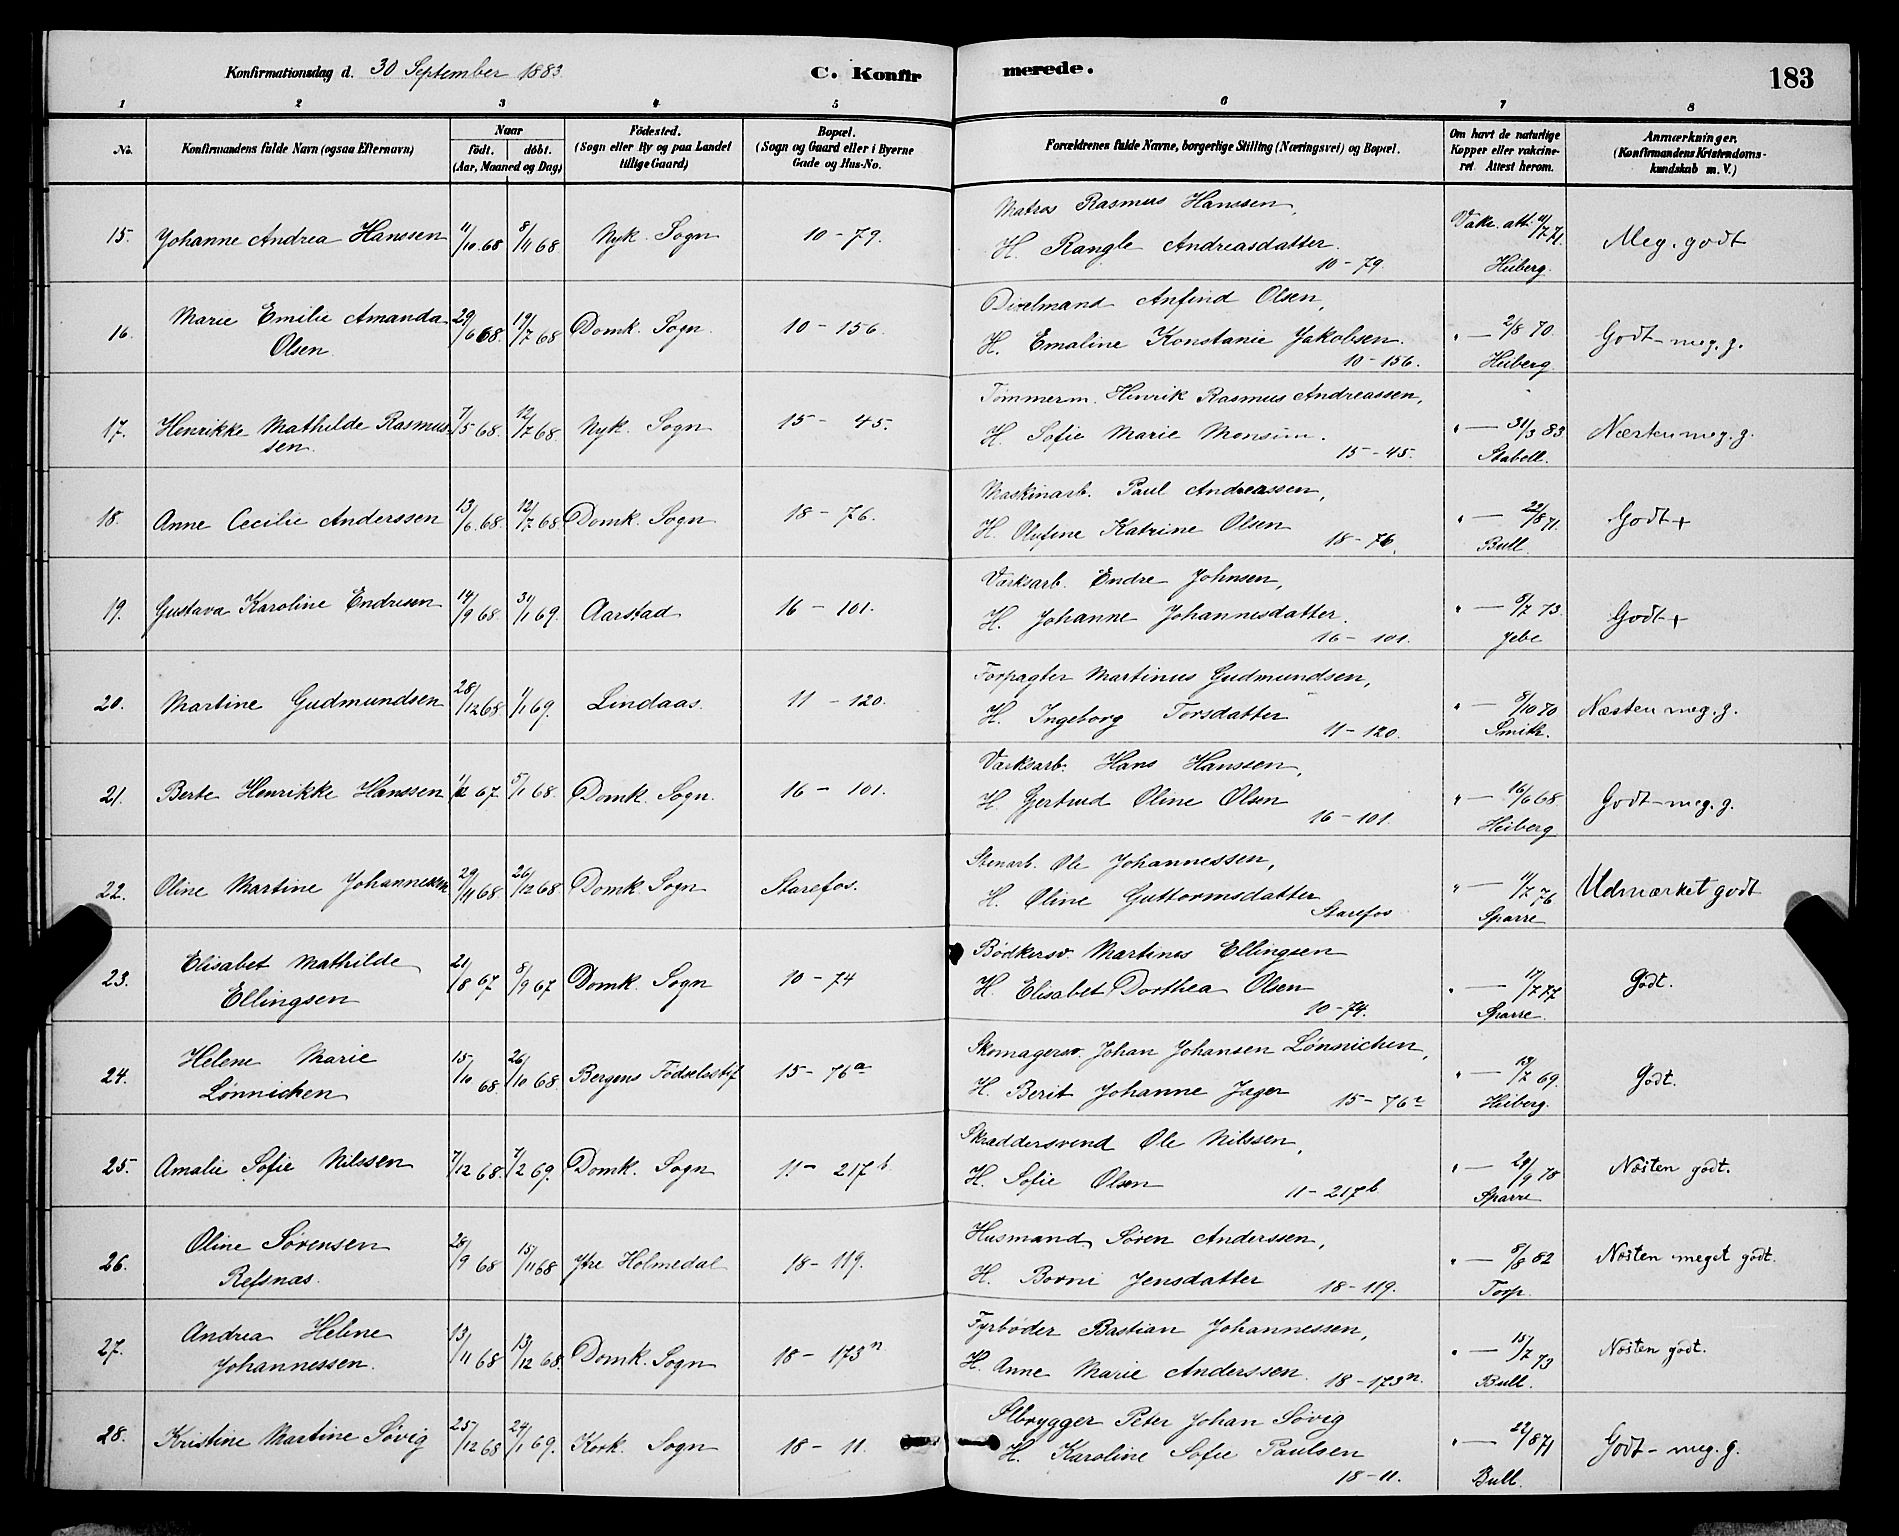 Konfirmationsdag d. 30 September 1883
C. Konfirmerede.
183
1 2 3 4 5 6 7 8
No.
Konfirmandens fulde Navn (ogsaa Efternavn)
Naar
födt. döbt.
(Aar, Maaned og Dag)
Födested.
(Sogn eller By og paa Landet
tillige Gaard)
Bopæl.
(Sogn og Gaard eller i Byerne
Gade og Hus-No.
Forældrenes fulde Navne, borgerlige Stilling (Næringsvei) og Bopæl.
Om havt de naturlige
Kopper eller vakcine-
ret. Attest herom.
Anmærkninger.
(Konfirmandens Kristendoms-
kundskab m. V.)
Matros Rasmus Hanssen,
15. Johanne Andrea Hanssen 11/10 68 8/11 68 Nyk. Sogn 10-79. H. Rangle Andreasdatter. Vakc. att. 11/7 71. Meg. godt
10-79. Heiberg.
Marie Emilie Amanda Anfind Olsen,
16. Olsen 29/6 68. 19/7 68 Domk. Sogn. 10-156. H. Emaline Konstanie Jakobsen. " — 2/8 70 Godt-meg. g.
10-156. Heiberg.
Tømmerm. Henrik Rasmus Andreassen,
17. Henrikke Mathilde Rasmus- 7/5 68. 12/7 68 Nyk. Sogn 15-45. H. Sofie Marie Monsen. " — 31/3 83 Næsten meg. g.
sen. 15-45. Stabell.
Maskinarb. Paul Andreassen,
18. Anne Cecilie Anderssen 13/6 68. 12/7 68 Domk. Sogn 18-76. H. Olufine Katrine Olsen " — 22/8 71. Godt+
18-76. Bull.
Værksarb. Endre Johnsen,
19. Gustava Karoline Endresen 14/9 68 31/1 69. Aarstad 16-101. H. Johanne Johannesdatter. " — 8/7 73. Godt+
16-101. Jebe
Forpagter Martinus Gudmundsen,
20. Martine Gudmundsen 28/12 68 1/1 69. Lindaas. 11-120. H. Ingeborg Torsdatter " — 8/10 70 Næsten meg. g.
11-120. Smith.
Værksarb. Hans Hanssen,
21. Berte Henrikke Hanssen 1/12 67. 5/1 68. Domk. Sogn. 16-101. H. Gertrud Oline Olsen " — 16/6 68 Godt-meg. g.
16-101. Heiberg
Stenarb. Ole Johannessen,
22. Oline Martine Johannessen 29/11 68 26/12 68 Domk. Sogn Starefos. H. Oline Guttormsdatter " — 11/7 76 Udmærket godt
Starefos Sparre
Bødkersv. Martines Ellingsen
23. Elisabet Mathilde 21/8 67 8/9 67 Domk. Sogn 10-74 H. Elisabet Dorthea Olsen " — 17/7 77 Godt.
Ellingsen 10-74. Sparre.
Skomagersv. Johan Johansen Lønnichen,
24. Helene Marie 15/10 68. 26/10 68. Bergens Födselsstif 15-76a H. Berit Johanne Jager " — 13/7 69. Godt.
Lønnicken 15-76a Heiberg.
Skræddersvend Ole Nilssen,
25. Amalie Sofie Nilssen 7/12 68. 7/2 69. Domk. Sogn 11-217b H. Sofie Olsen " — 24/9 78 Næsten godt.
11-217b Sparre
Husmand Søren Anderssen,
26. Oline Sørensen 28/9 68 15/11 68 Ytre Holmedal 18-119. H. Borni Jensdatter " — 8/8 82 Næsten meget godt.
Refsnæs. 18-119. Torp.
Fyrbøder Bastian Johannessen,
27. Andrea Helene 13/11 68 13/12 68. Domk. Sogn 18-173n H. Anne Marie Anderssen. " — 15/7 73 Næsten godt.
Johannessen. 18-173n. Bull.
Ølbrygger Peter Johan Søvig
28. Kristine Martine Søvig 25/12 68 24/1 69. Kork. Sogn 18-11. H. Karoline Sofie Paulsen " — 22/8 71 Godt-meg. g.
18-11. Bull.